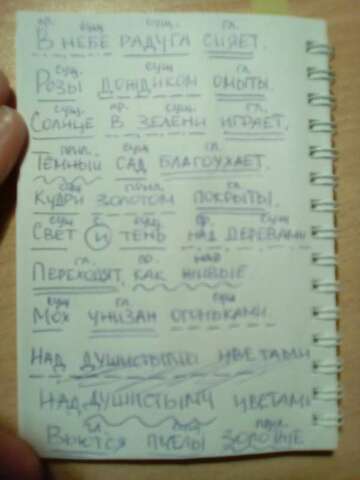 пр. сущ. сущ. гл.
В НЕБЕ РАДУГА СИЯЕТ,
сущ. сущ. гл.
РОЗЫ ДОЖДИКОМ ОМЫТЫ.
сущ. пр. сущ. гл.
СОЛНЦЕ В ЗЕЛЕНИ ИГРАЕТ,
прил. сущ. гл.
ТЁМНЫЙ САД БЛАГОУХАЕТ.
сущ прил. гл
КУДРИ ЗОЛОТОМ ПОКРЫТЫ.
сущ с сущ. пр. сущ
СВЕТ И ТЕНЬ НАД ДЕРЕВАМИ
гл.
ПЕРЕХОДЯТ, КАК ЖИВЫЕ
сущ гл. сущ
МОХ УНИЗАН ОГОНЬКАМИ.
НАД ДУШИСТЫМИ ЦВЕТАМИ
НАД ДУШИСТЫМИ ЦВЕТАМИ
гл. сущ прил.
ВЬЮТСЯ ПЧЕЛЫ ЗОЛОТЫЕ